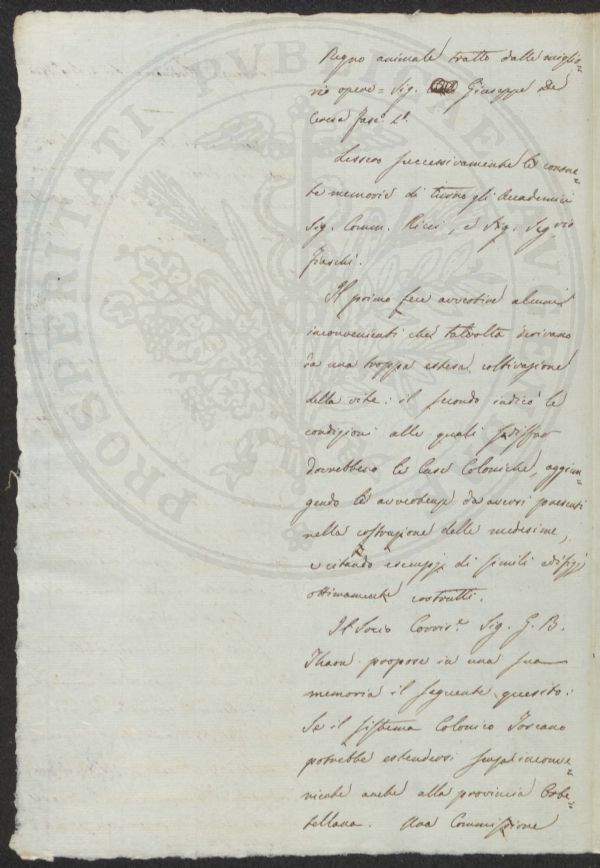 PROSPERITATI PVBLICAE AVGENDAE
Regno animale tratto dalle miglio=
ri opere = Sig. Giuseppe De
Ceresa fasc. 2º.
Lessero successivamente le consue=
te memorie di turno gli Accademici
Sig. Comm. Ricci, e Sig.
Il primo fece avvertire alcuni
inconvenienti che talvolta derivano
da una troppo estesa coltivazione
della vite: il secondo indicò le
condizioni alle quali
dovrebbero le Case Coloniche, aggiun=
gendo le avvertenze da aversi presenti
nella costruzione delle medesime,
e citando esempj di simili edifizj
ottimamente costrutti.
Il Socio Corrisp.e Sig. G. B.
Thaon propose in una sua
memoria il seguente quesito:
Se il sistema Colonico Toscano
potrebbe estendersi senza inconve=
niente anche alla provincia Orbe=
tellana. Una Commissione